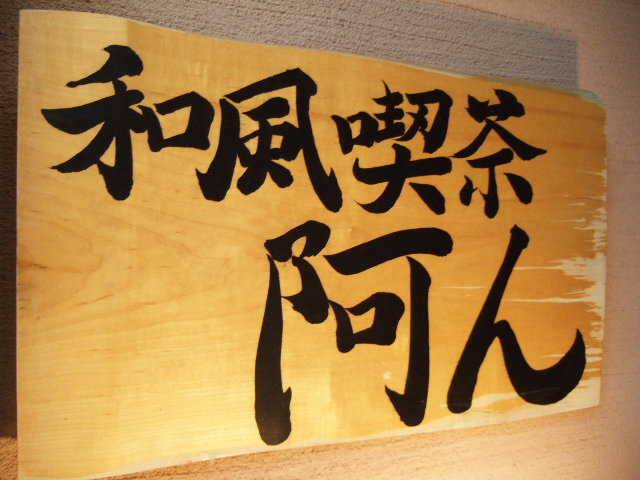 和風喫茶
阿ん